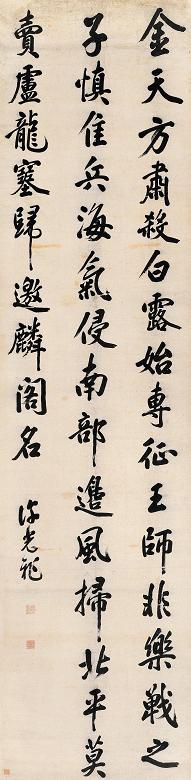 金天方肅殺白露始專征王師非樂戰之
子慎佳兵海氣侵南部邊風掃北平莫
賣盧龍塞歸邀麟閣名
沈光龍